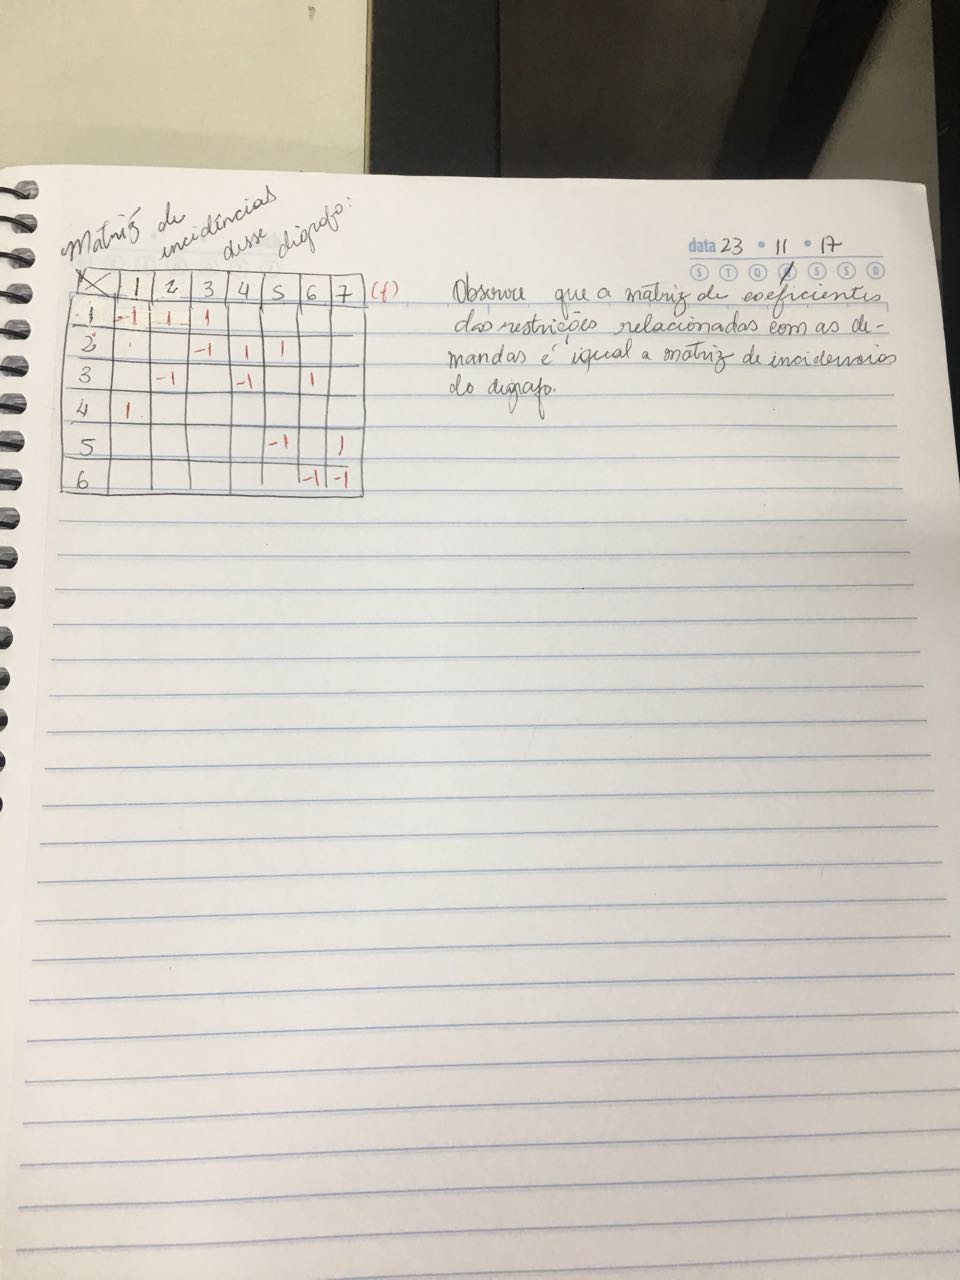 Matriz de
incidências
desse digrafo:
data 23 • 11 • 17
S T Q Q S S D
X 1 2 3 4 5 6 7 (f)
1 -1 1 1
2 -1 1 1
3 -1 -1 1
4 1
5 -1 1
6 -1 -1
Observe que a matriz de coeficientes
das restrições relacionadas com as de-
mandas é igual a matriz de incidencias
do digrafo.